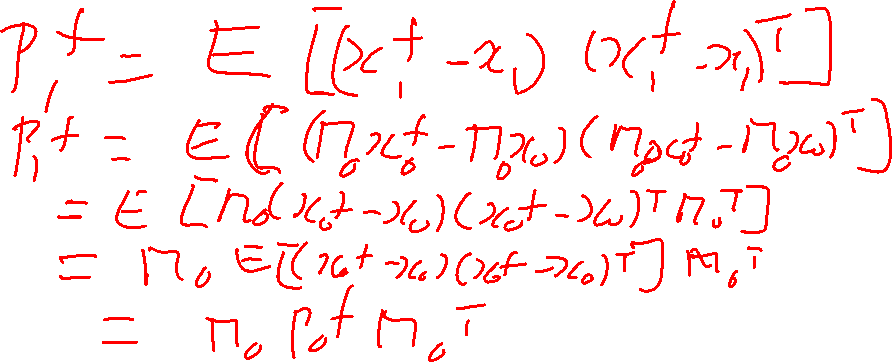 P₁ᶠ = E [(x₁ᶠ - x₁) (x₁ᶠ - x₁)ᵀ]
P₁ᶠ = E [(M₀x₀ᶠ - M₀x₀)(M₀x₀ᶠ - M₀x₀)ᵀ]
= E [M₀(x₀ᶠ - x₀)(x₀ᶠ - x₀)ᵀ M₀ᵀ]
= M₀ E[(x₀ᶠ - x₀)(x₀ᶠ - x₀)ᵀ] M₀ᵀ
= M₀ P₀ᶠ M₀ᵀ